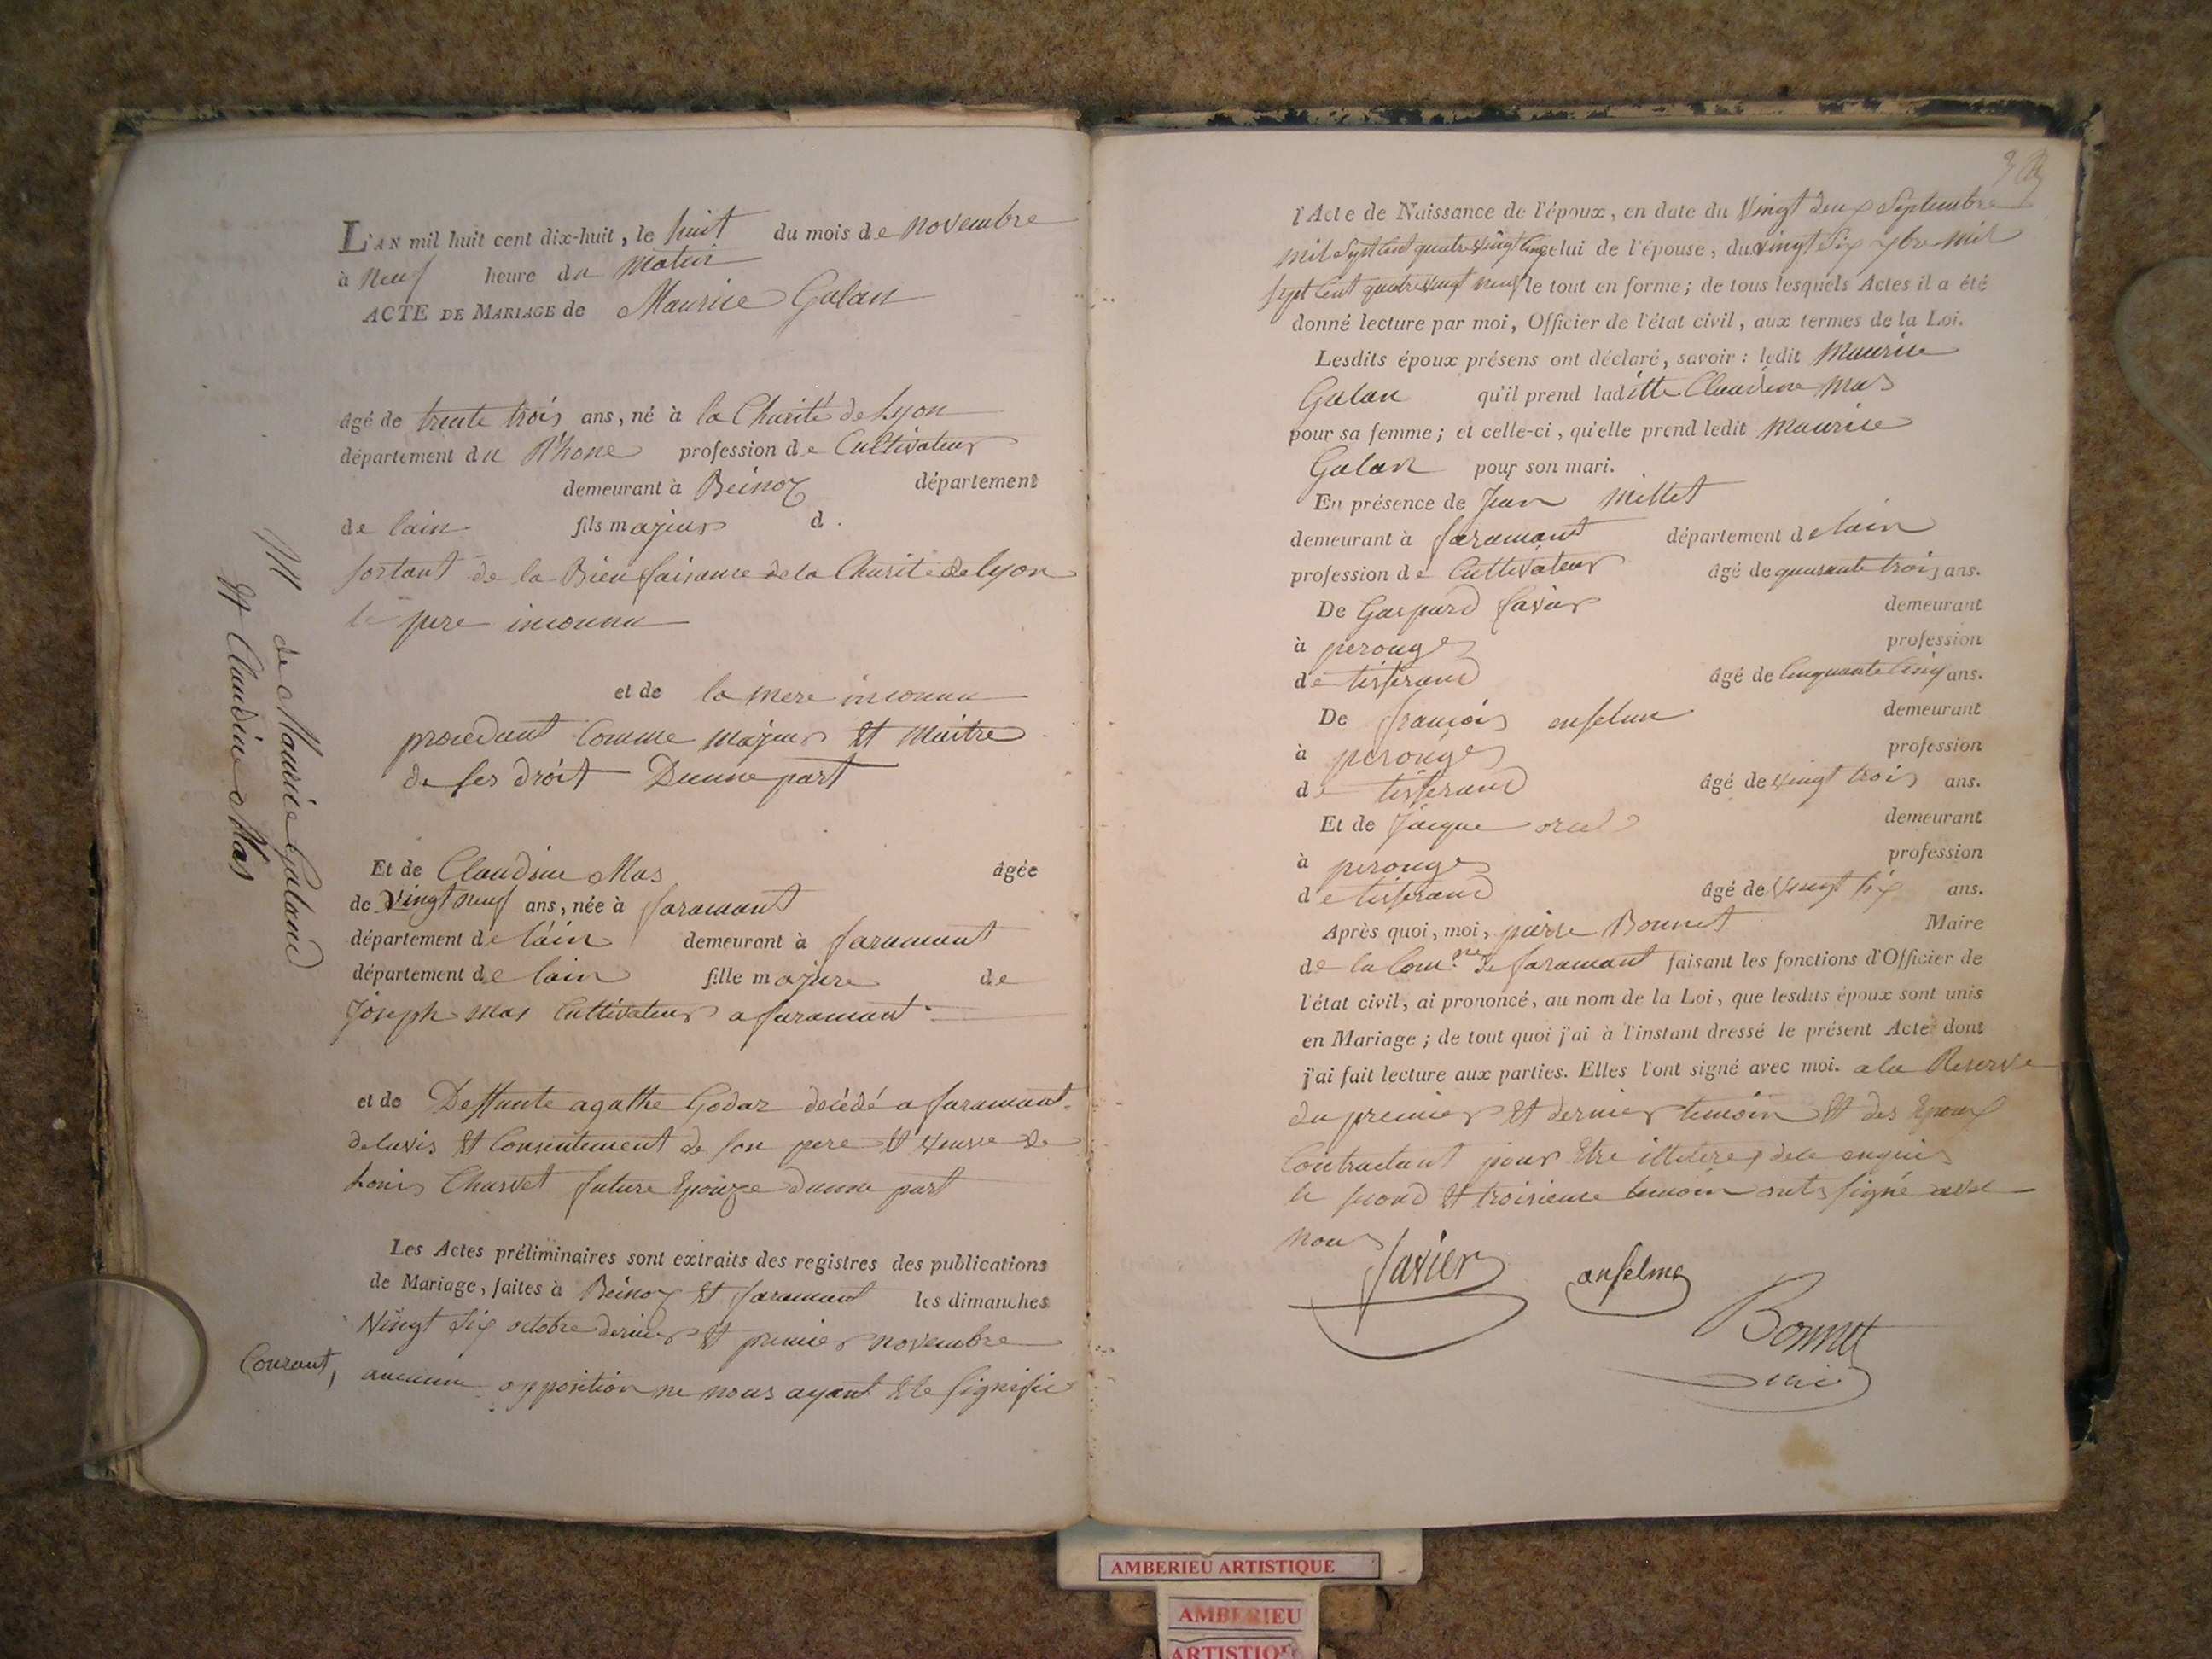 M de Maurice Galand
et Claudine Mas
L'AN mil huit cent dix-huit, le huit du mois de novembre
à neuf heure du matin
ACTE DE MARIAGE de Maurice Galan
âgé de trente trois ans, né à la Charité de Lyon
département du Rhone profession de Cultivateur
demeurant à Beinoz département
de lain fils majeur d
sortant de la Bienfaisance de la Charité de lyon
le pere inconnu
et de la mere inconnu
procedant Comme majeur et maitre
de ses droit Dunne part
Et de Claudine Mas âgée
de Vingt neuf ans, née à faramant
département de láin demeurant à faramant
département de lain fille majure de
Joseph mas Cultivateur a faramant
et de Deffunte agathe Godar décédé a faramant
de lavis et Consentement de son pere et veuve de
Louis Charvet future Epouze dunne part
Les Actes préliminaires sont extraits des registres des publications
de Mariage, faites à Beinoz et faramant les dimanches
Vingt Six octobre dernier et premier novembre
Courant, aucune opposition ne nous ayant Ete signifié
l'Acte de Naissance de l'époux, en date du Vingt deux Septembre
mil Sept Cent quatre vingt Cinq celui de l'épouse, du vingt Six 7bre mil
sept Cent quatre vingt neuf le tout en forme; de tous lesquels Actes il a été
donné lecture par moi, Officier de l'état civil, aux termes de la Loi.
Lesdits époux présens ont déclaré, savoir: ledit Maurice
Galan qu'il prend laditte Claudine mas
pour sa femme; et celle-ci, qu'elle prend ledit Maurice
Galan pour son mari.
En présence de Jean Millet
demeurant à faramant département de lain
profession de Cultivateur âgé de quarante trois ans.
De Gaspard favier demeurant
à perouge profession
de tisserand âgé de Cinquante Cinq ans.
De françois anselme demeurant
à perouges profession
de tisserand âgé de vingt trois ans.
Et de Jacque demeurant
à perouges profession
de tisserand âgé de vingt six ans.
Après quoi, moi, pierre Bonnet Maire
de la Com.ne de faramant faisant les fonctions d'Officier de
l'état civil, ai prononcé, au nom de la Loi, que lesdits époux sont unis
en Mariage; de tout quoi j'ai à l'instant dressé le présent Acte dont
j'ai fait lecture aux parties. Elles l'ont signé avec moi. a la Reserve
du premier et dernier temoin et des Epoux
Contractant pour Etre illitere de ce enquis
le second et troisieme temoin ont signé avec
nous
favier anselme
Bonnet
AMBERIEU ARTISTIQUE
AMBERIEU